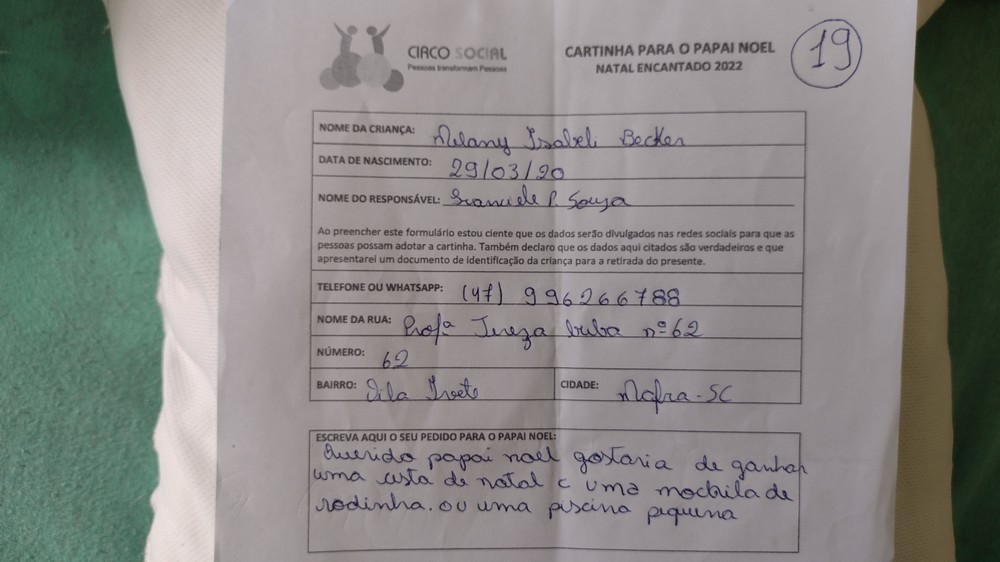 CIRCO SOCIAL
Pessoas transformam Pessoas
CARTINHA PARA O PAPAI NOEL
NATAL ENCANTADO 2022
19
NOME DA CRIANÇA: Melany Isabeli Becker
DATA DE NASCIMENTO: 29/03/20
NOME DO RESPONSÁVEL: P. Souza
Ao preencher este formulário estou ciente que os dados serão divulgados nas redes sociais para que as
pessoas possam adotar a cartinha. Também declaro que os dados aqui citados são verdadeiros e que
apresentarei um documento de identificação da criança para a retirada do presente.
TELEFONE OU WHATSAPP: (47) 996266788
NOME DA RUA: Profª Tereza buba nº 62
NÚMERO: 62
BAIRRO: Vila Ivete CIDADE: Mafra-SC
ESCREVA AQUI O SEU PEDIDO PARA O PAPAI NOEL:
Querido papai noel gostaria de ganhar
uma cesta de natal e uma mochila de
rodinha. ou uma piscina piquena